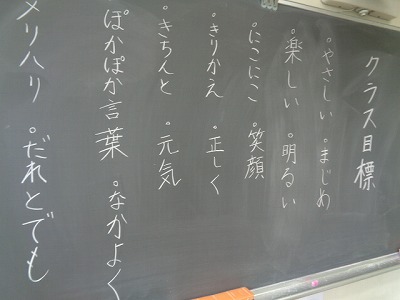 クラス目標
・やさしい ・まじめ
・楽しい ・明るい
・にこにこ ・笑顔
・きりかえ ・正しく
・きちんと ・元気
ぽかぽか言葉 ・なかよく
メリハリ ・だれとでも